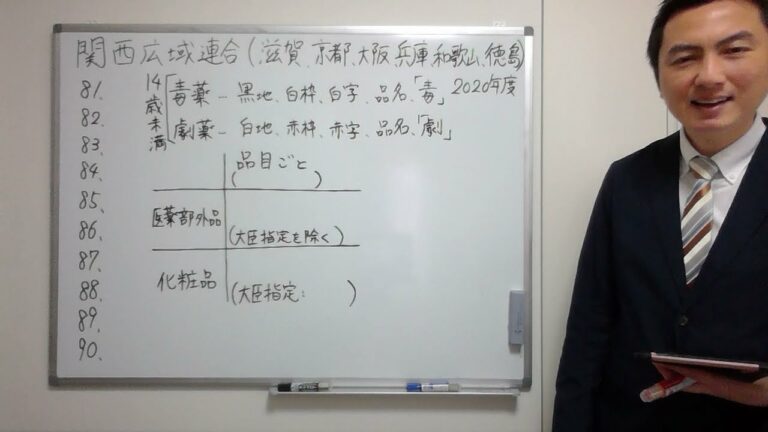 関西広域連合(滋賀、京都、大阪、兵庫、和歌山、徳島)
2020年度
81.
82.
83.
84.
85.
86.
87.
88.
89.
90.
14歳未満
毒薬 … 黒地、白枠、白字、品名、「毒」
劇薬 … 白地、赤枠、赤字、品名、「劇」
品目ごと
( )
医薬部外品
(大臣指定を除く)
化粧品
(大臣指定: )